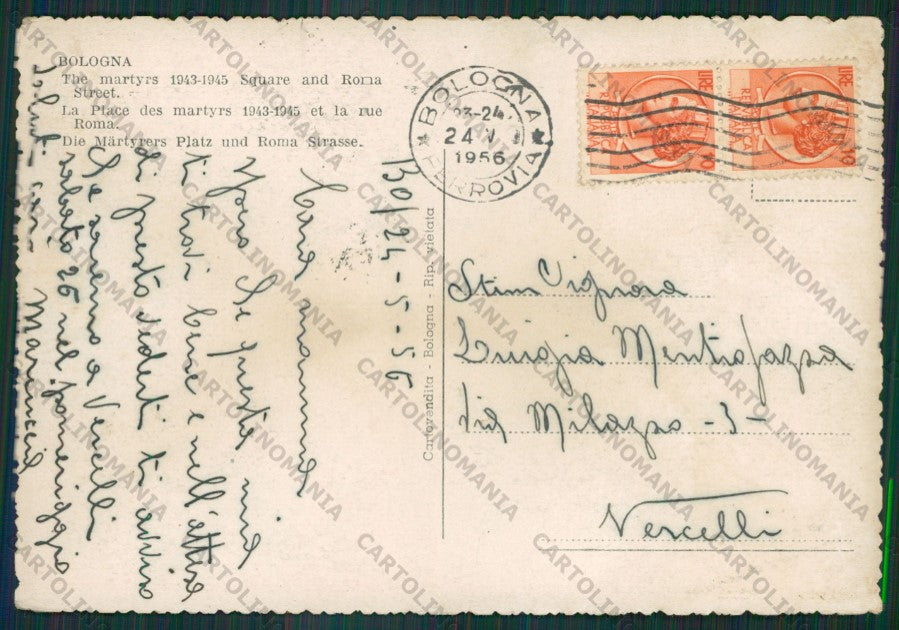 BOLOGNA
The martyrs 1943-1945 Square and Roma
Street.
La Place des martyrs 1943-1945 et la rue
Roma.
Die Märtyrers Platz und Roma Strasse.
BOLOGNA
23-24
24 V
1956
FERROVIA
LIRE
10
LIRE
10
Cartovendita - Bologna - Rip. vietata
BO/24-5-56
Cara mamma
spero che questa mia
ti trovi bene e nell'attesa
di presto vederti ti avviso
che saremo a Vercelli
sabato 26 nel pomeriggio
Saluti cari Mariuccia
Stim Signora
Luigia Mentigazza
Via Milazzo -3-
Vercelli
CARTOLINOMANIA